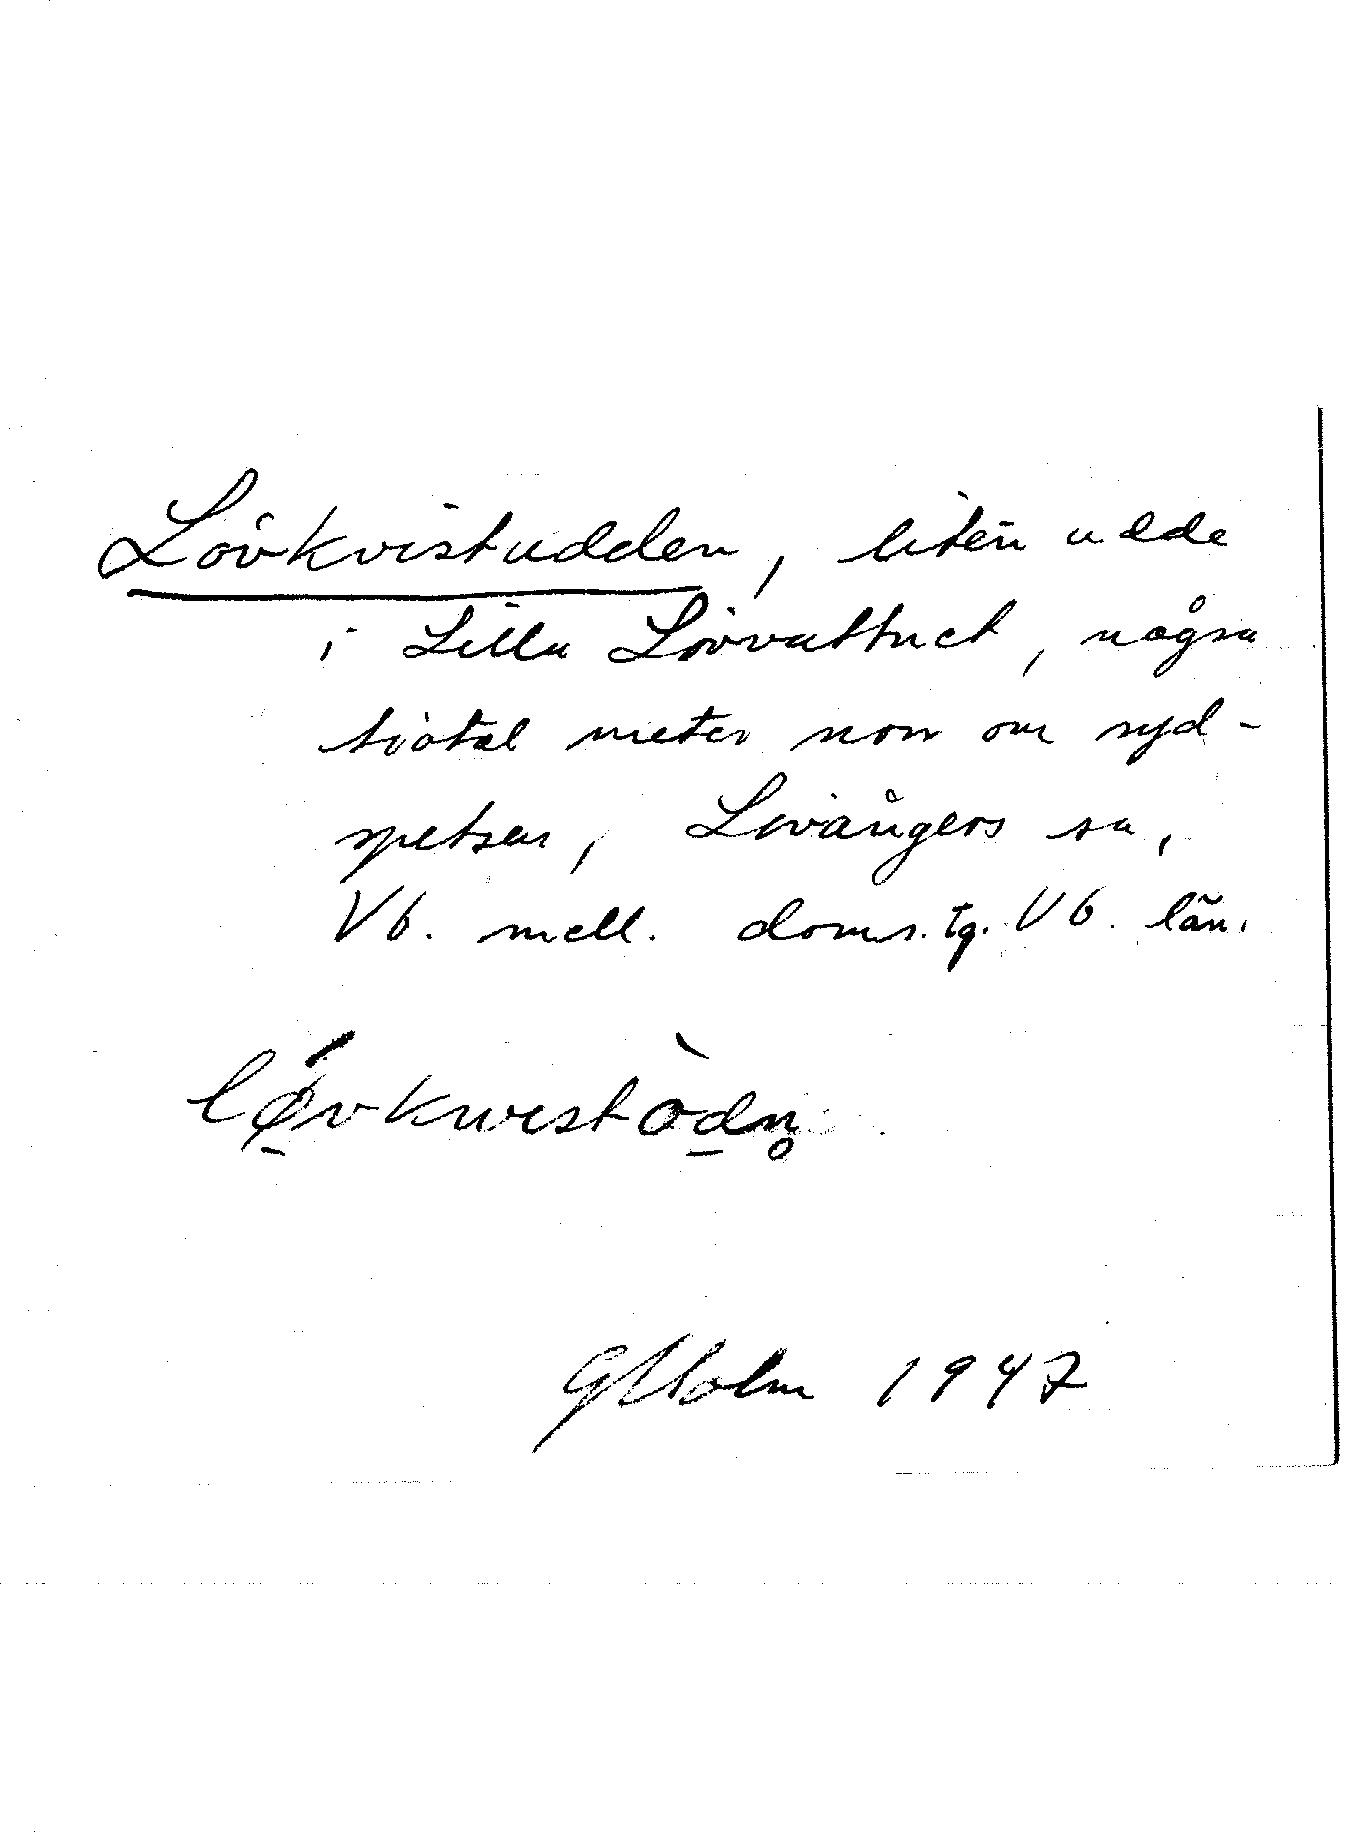 Lövkvistudden, liten udde
i Lilla Lövvattnet, några
tiotal meter norr om syd-
spetsen, Lövångers sn,
Vb. mell. doms. tg. Vb. län.
lǿ̱vkwistòḏn̥
G Holm 1947